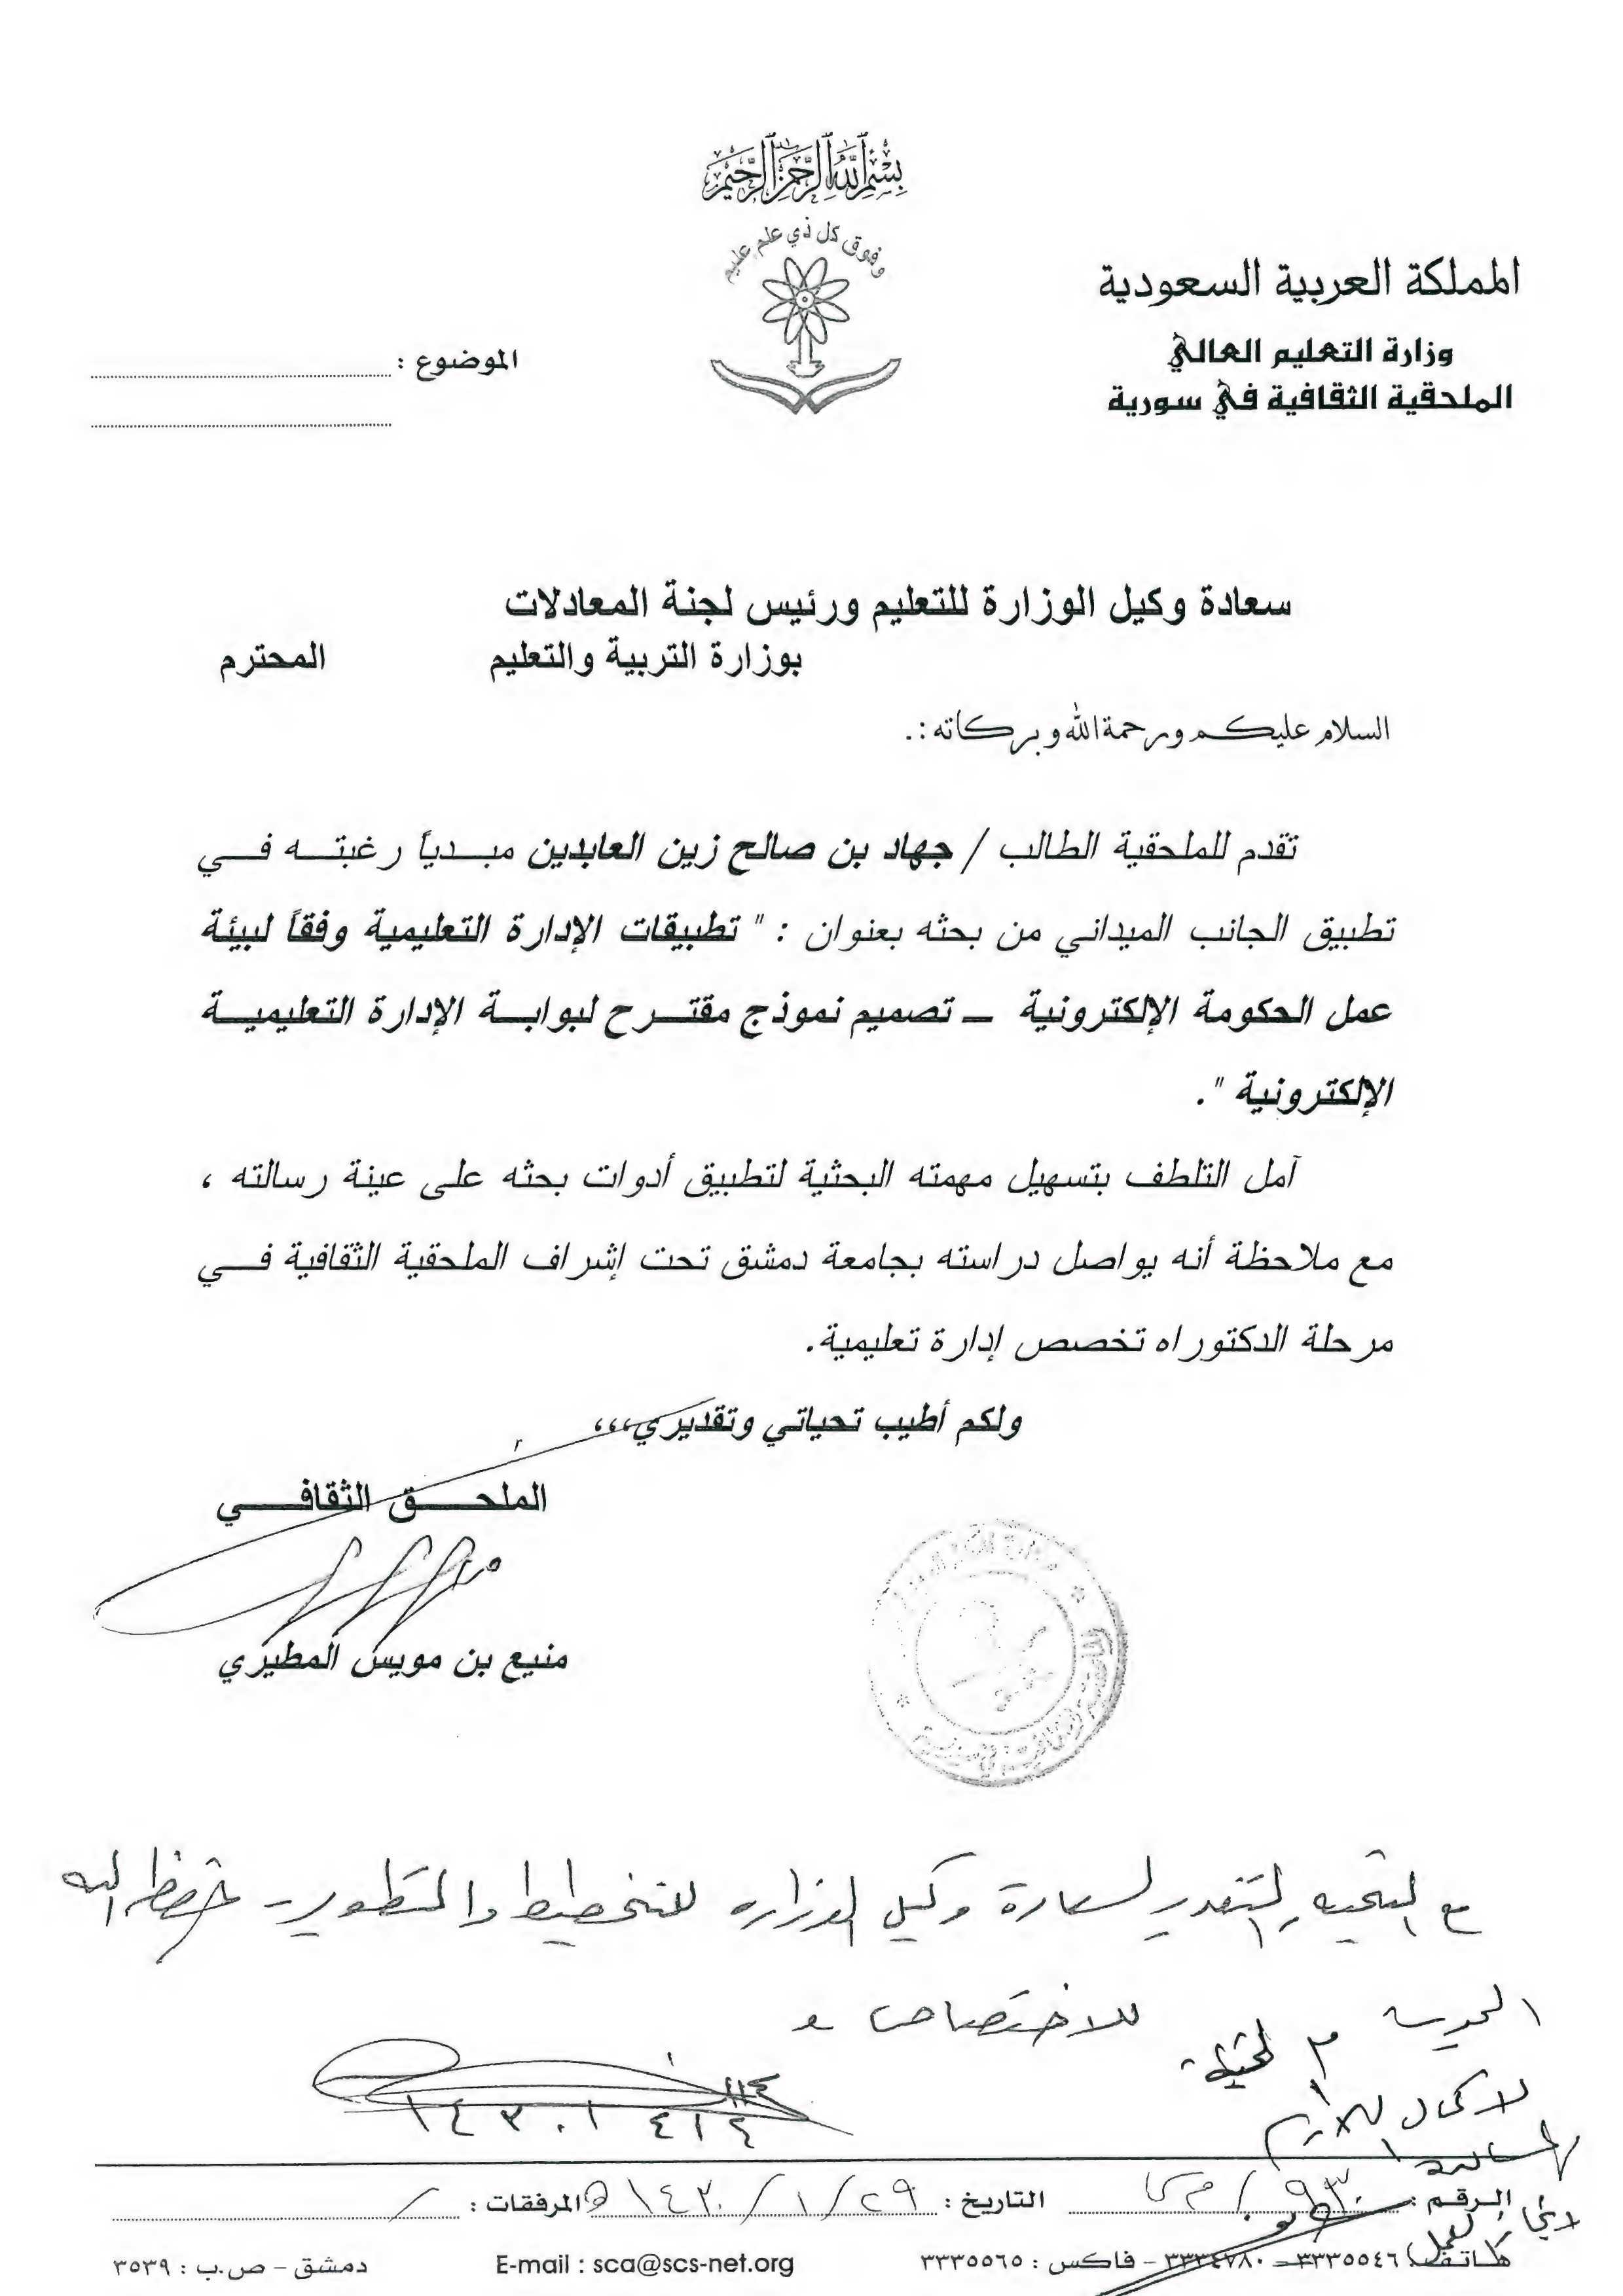 بسم الله الرحمن الرحيم
وفوق كل ذي علم عليم
المملكة العربية السعودية
وزارة التعليم العالي
الملحقية الثقافية في سورية
الموضوع :
سعادة وكيل الوزارة للتعليم ورئيس لجنة المعادلات
بوزارة التربية والتعليم المحترم
السلام عليكم ورحمة الله وبركاته :.
تقدم للملحقية الطالب / جهاد بن صالح زين العابدين مبدياً رغبته في
تطبيق الجانب الميداني من بحثه بعنوان : " تطبيقات الإدارة التعليمية وفقاً لبيئة
عمل الحكومة الإلكترونية – تصميم نموذج مقترح لبوابة الإدارة التعليمية
الإلكترونية ".
آمل التلطف بتسهيل مهمته البحثية لتطبيق أدوات بحثه على عينة رسالته ،
مع ملاحظة أنه يواصل دراسته بجامعة دمشق تحت إشراف الملحقية الثقافية في
مرحلة الدكتوراه تخصص إدارة تعليمية.
ولكم أطيب تحياتي وتقديري،،،
الملحق الثقافي
منيع بن مويس المطيري
مع التحية والتقدير لسعادة وكيل الوزارة للتخطيط والتطوير حفظه الله
للاختصاص
الرقم : ٩٣٠ / التاريخ : ٢٩ / ١ / ١٤٣٠ هـ المرفقات : /
هاتف : ٣٣٣٥٥٤٦ – ٣٣٣٤٧٨٠ – فاكس : ٣٣٣٥٥٦٥ E-mail : sca@scs-net.org دمشق – ص.ب : ٣٥٣٩